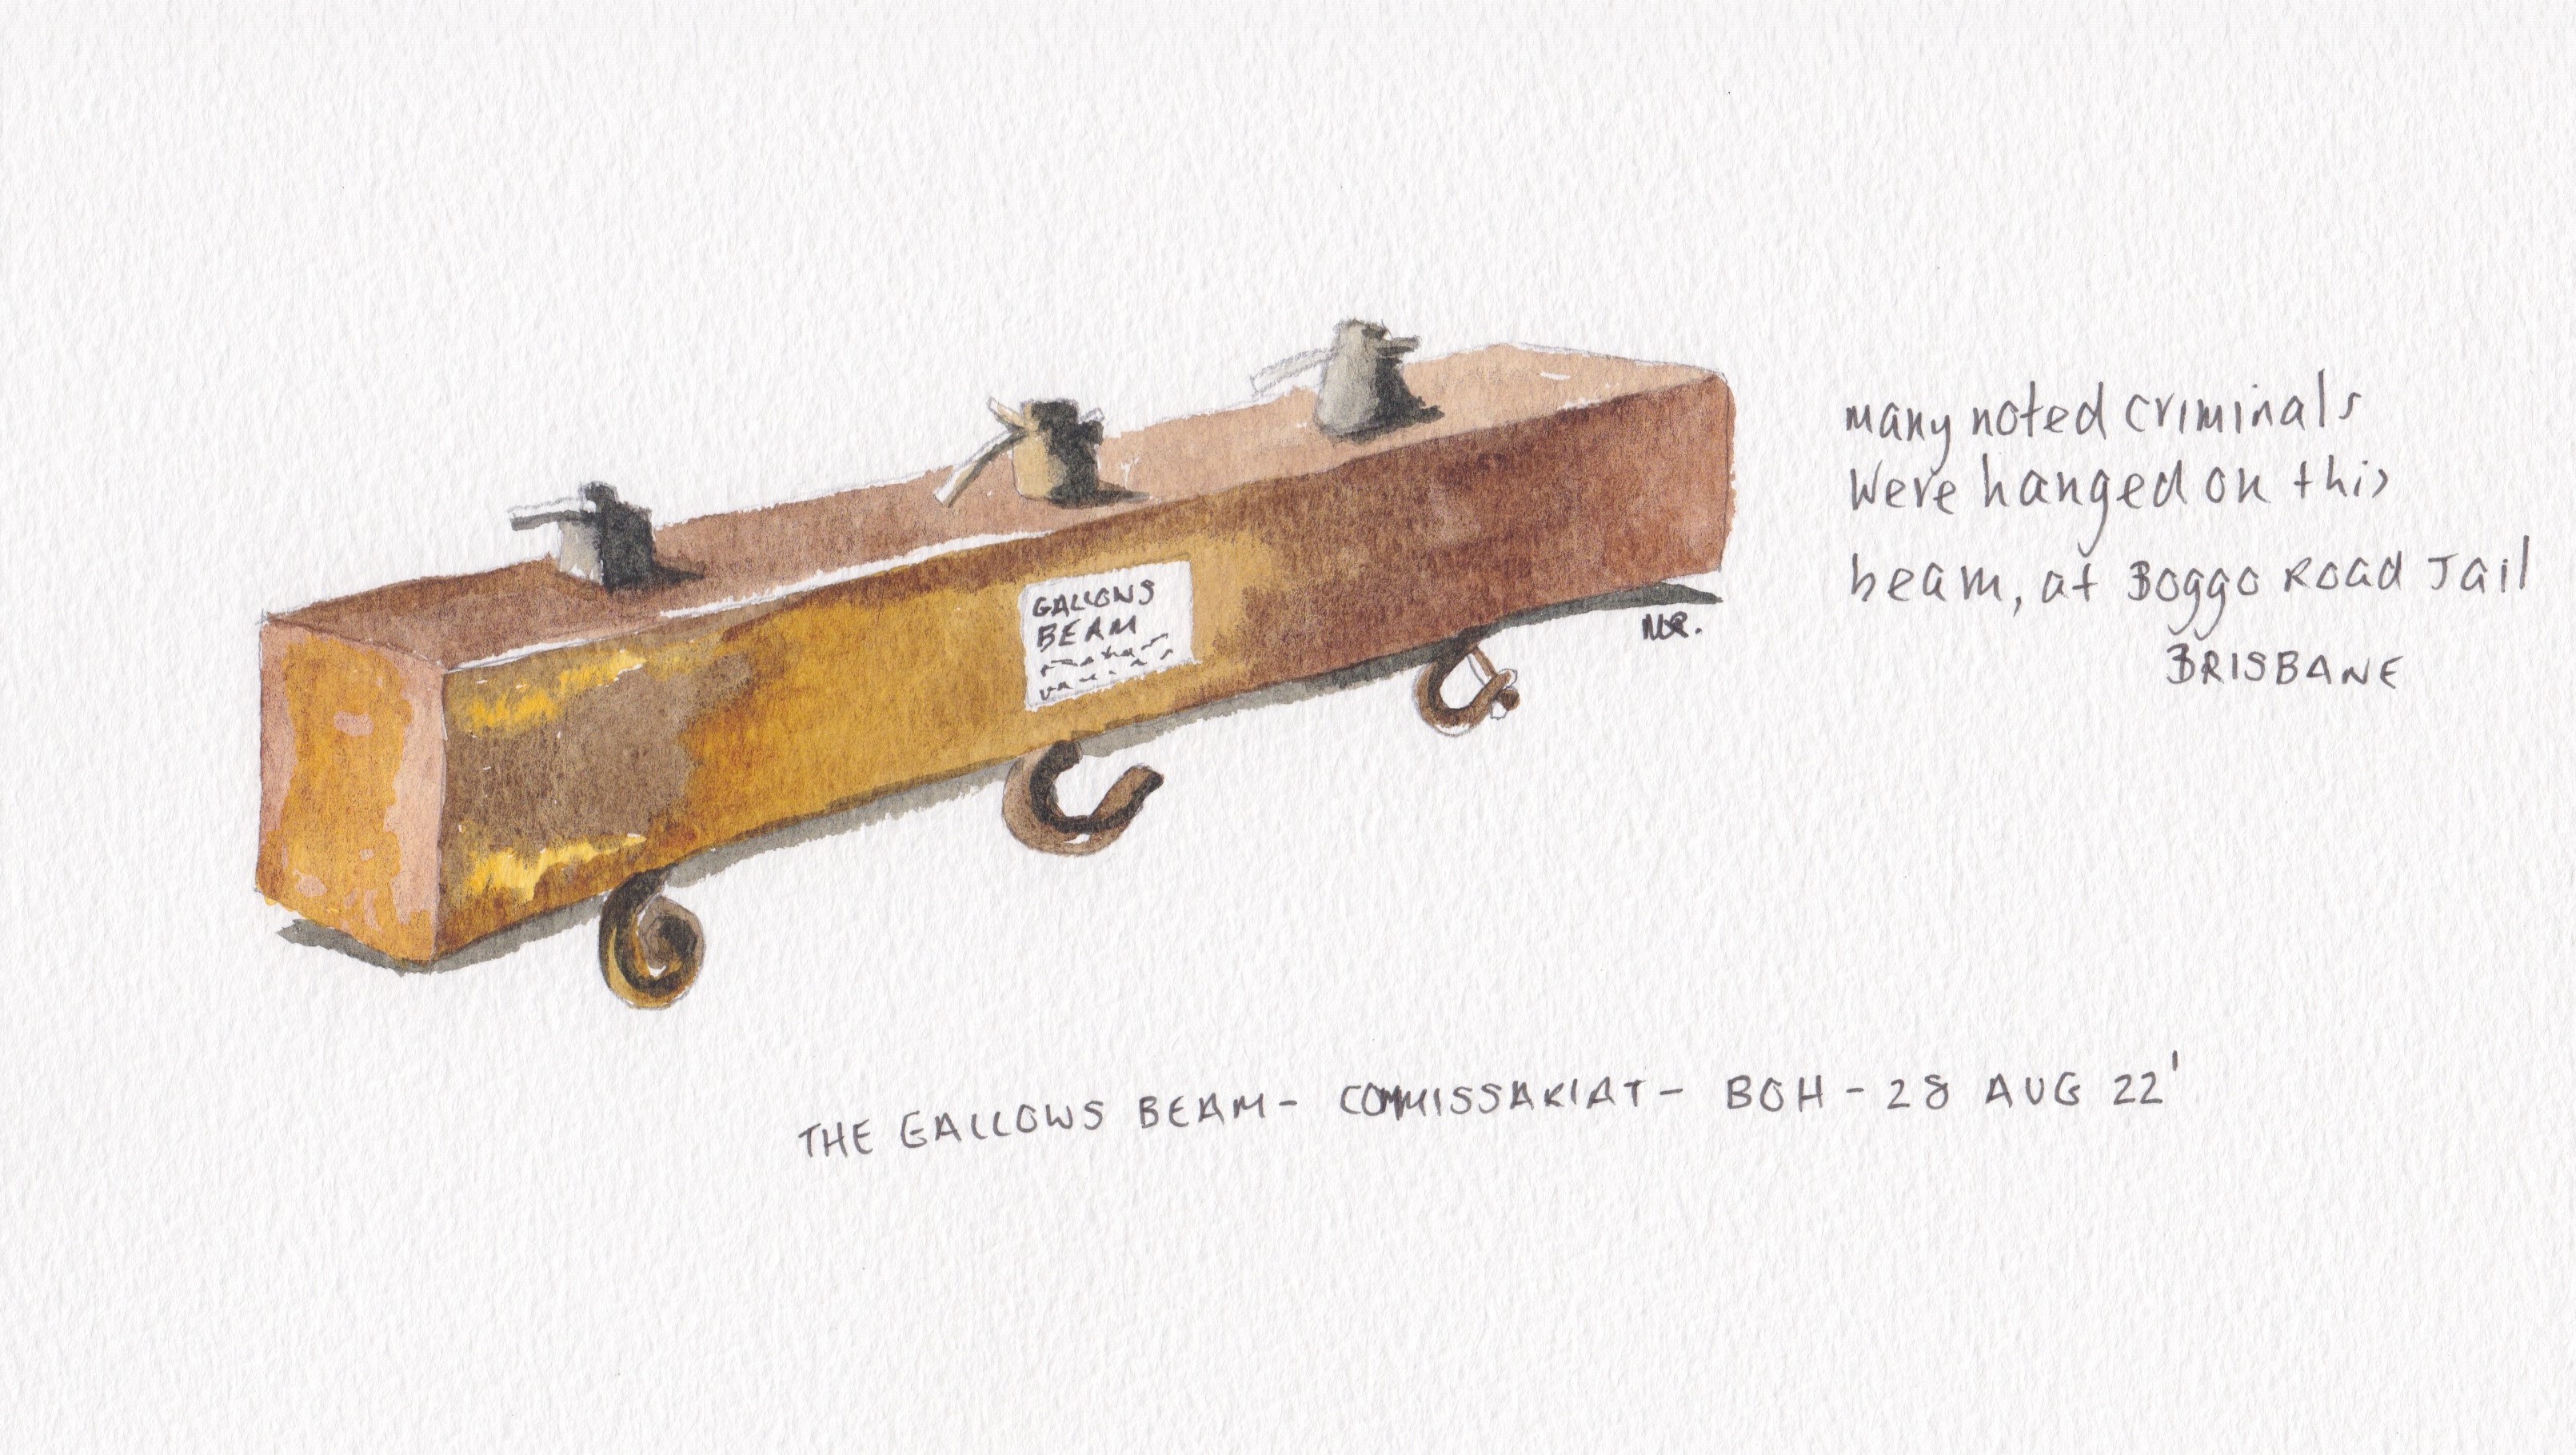 many noted criminals
were hanged on this
beam, at Boggo Road Jail
BRISBANE
GALLOWS
BEAM
THE GALLOWS BEAM - COMMISSARIAT - BOH - 28 AUG 22'